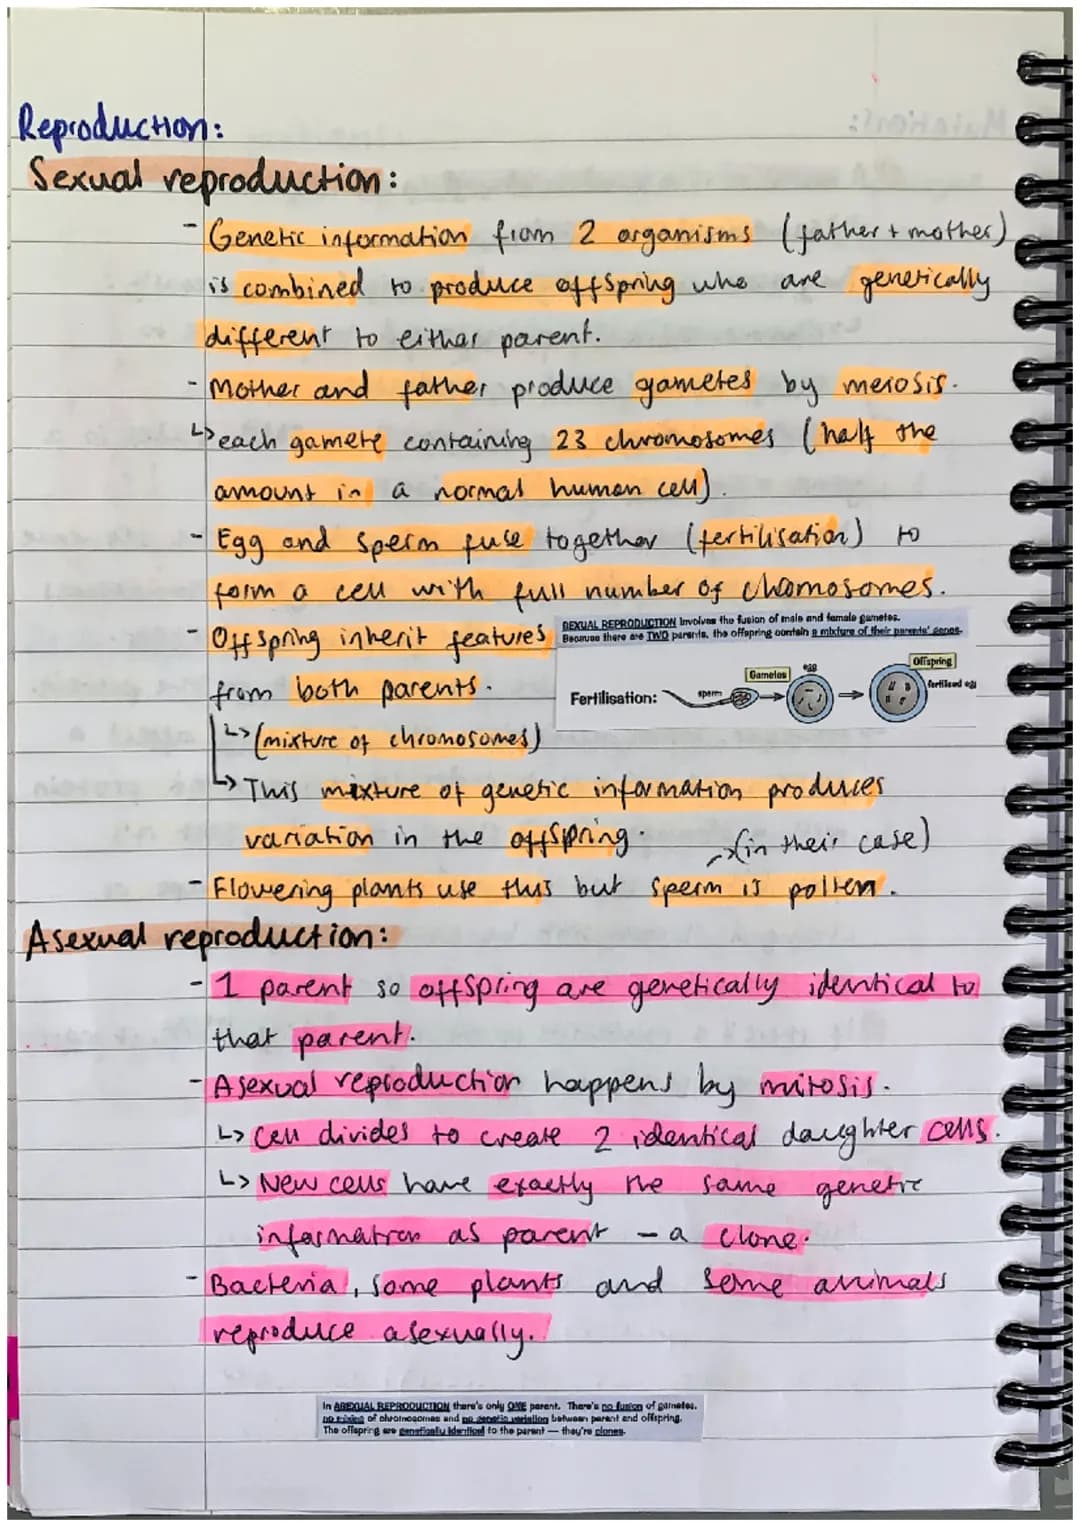 Reproduction:
Sexual reproduction:
- Genetic information from 2 organisms (father + mother)
is combined to produce offspring who are genetically
different to either parent.
- Mother and father produce gametes by meiosis.
↳ each gamete containing 23 chromosomes (half the
amount in a normal human cell).
- Egg and sperm fuse together (fertilisation) to
form a cell with full number of chromosomes.
- Offspring inherit features
from both parents.
SEXUAL REPRODUCTION involves the fusion of male and female gametes.
Because there are TWO parents, the offspring contain a mixture of their parents' genes.
Fertilisation:
sperm
Gametes
egg
Offspring
fertilised egg
↳ (mixture of chromosomes)
↳ This mixture of genetic information produces
variation in the offspring.
→ (in their case)
- Flowering plants use this but sperm is pollen.
Asexual reproduction:
- 1 parent so offspring are genetically identical to
that parent.
- Asexual reproduction happens by mitosis.
↳ Cell divides to create 2 identical daughter cells.
↳ New cells have exactly the same genetic
information as parent - a clone.
- Bacteria, some plants and some animals
reproduce asexually.
In ASEXUAL REPRODUCTION there's only ONE parent. There's no fusion of gametes,
no mixing of chromosomes and no genetic variation between parent and offspring.
The offspring are genetically identical to the parent — they're clones.